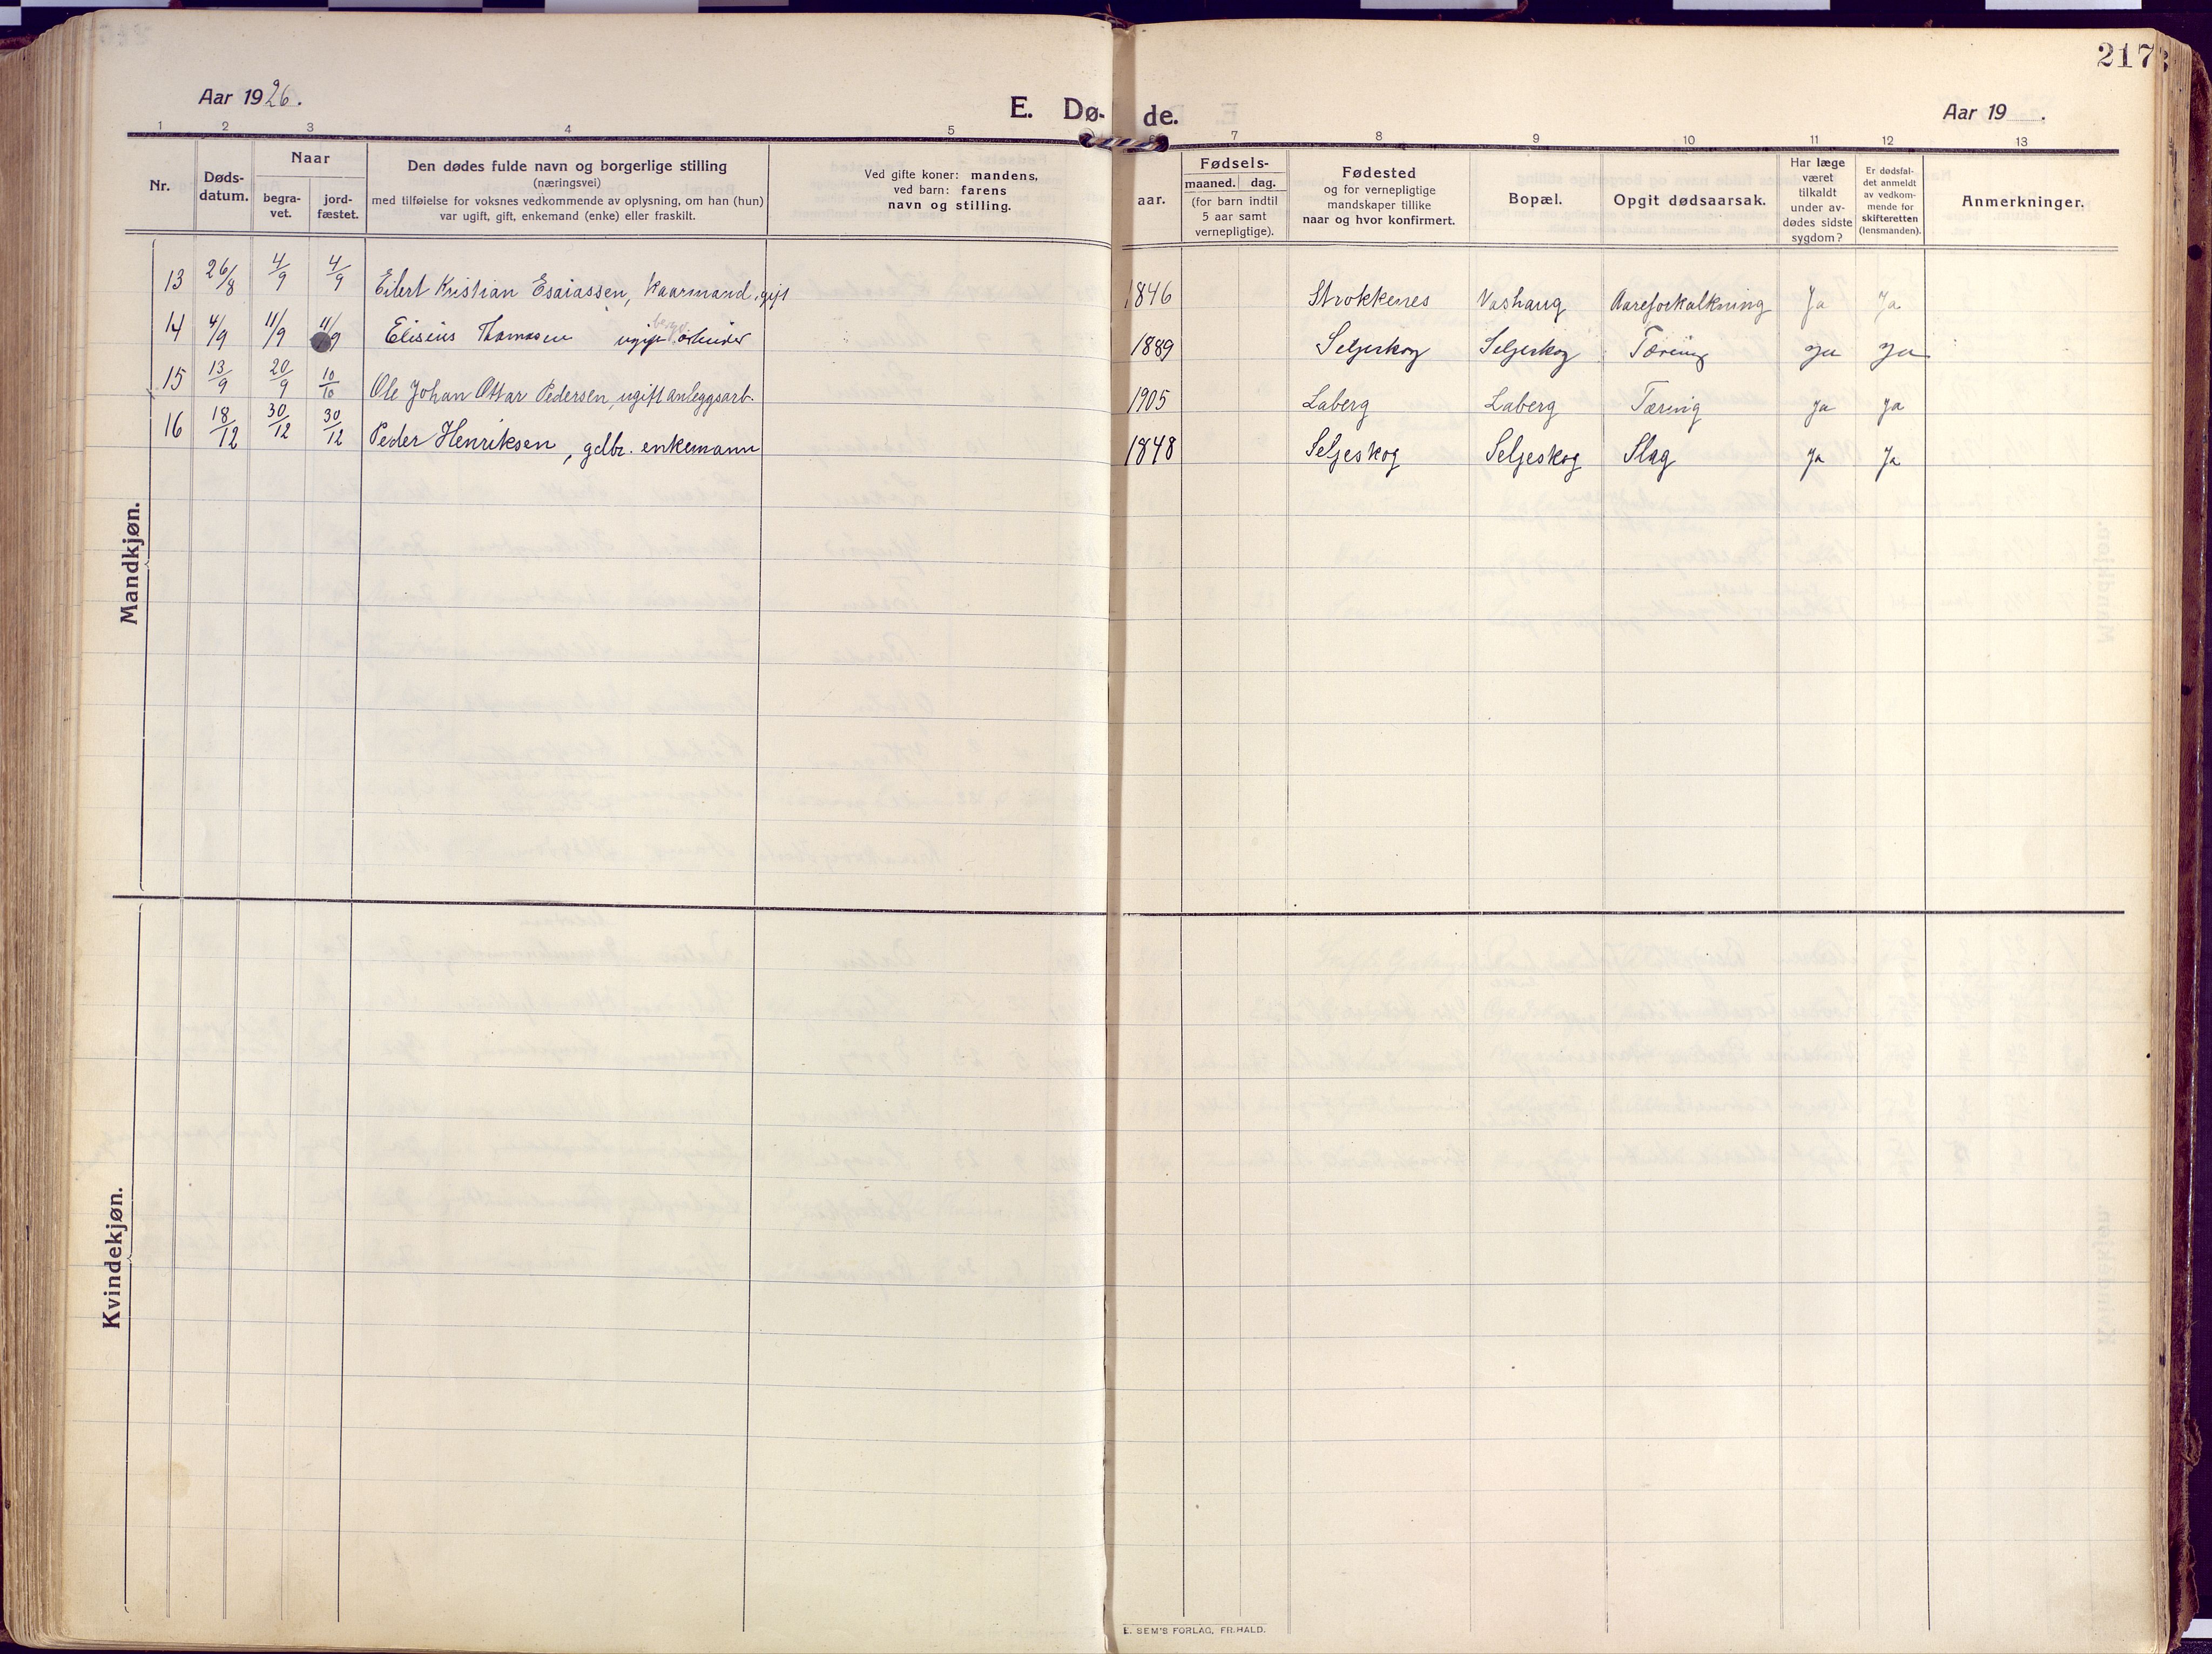 217
Aar 1926.
E. Dø- de.
Aar 19 .
1 2 3 4 5 6 7 8 9 10 11 12 13
Nr.
Døds-
datum.
Naar
begra-
vet.
jord-
fæstet.
Den dødes fulde navn og borgerlige stilling
(næringsvei)
med tilføielse for voksnes vedkommende av oplysning, om han (hun)
var ugift, gift, enkemand (enke) eller fraskilt.
Ved gifte koner: mandens,
ved barn: farens
navn og stilling.
aar.
Fødsels-
maaned. dag.
(for barn indtil
5 aar samt
vernepligtige).
Fødested
og for vernepligtige
mandskaper tillike
naar og hvor konfirmert.
Bopæl.
Opgit dødsaarsak.
Har læge
været
tilkaldt
under av-
dødes sidste
sygdom?
Er dødsfal-
det anmeldt
av vedkom-
mende for
skifteretten
(lensmanden).
Anmerkninger.
Mandkjøn.
13 26/8 4/9 4/9 Eilert Kristian Esaiassen, Kaarmand, gift 1846 Strokkenes Vashaug Aareforkalkning Ja Ja
14 4/9 11/9 11/9 Elisius Thomasen ugift arbeider 1889 Seljeskog Seljeskog Tæring Ja Ja
15 13/9 20/9 10/10 Ole Johan Ottar Pedersen, ugift anleggsarb. 1905 Laberg Laberg Tæring Ja Ja
16 18/12 30/12 30/12 Peder Henriksen, gdbr. enkemann 1848 Seljeskog Seljeskog Slag Ja Ja
Kvindekjøn.
E. SEM'S FORLAG, FR.HALD.